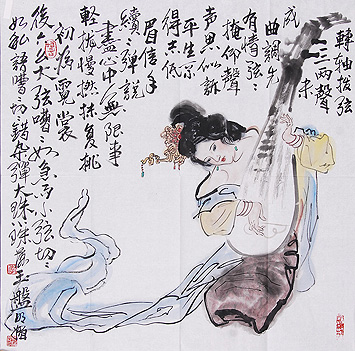 轉軸撥弦
三兩聲未
成
曲調先
有情弦〻
掩抑聲
聲思似訴
平生不
得志低
眉信手
續〻彈說
盡心中無限事
輕攏慢撚抹复挑
初為霓裳
後六么大弦嘈〻如急雨小弦切〻
如私語嘈〻切〻錯杂彈大珠小珠落玉盤